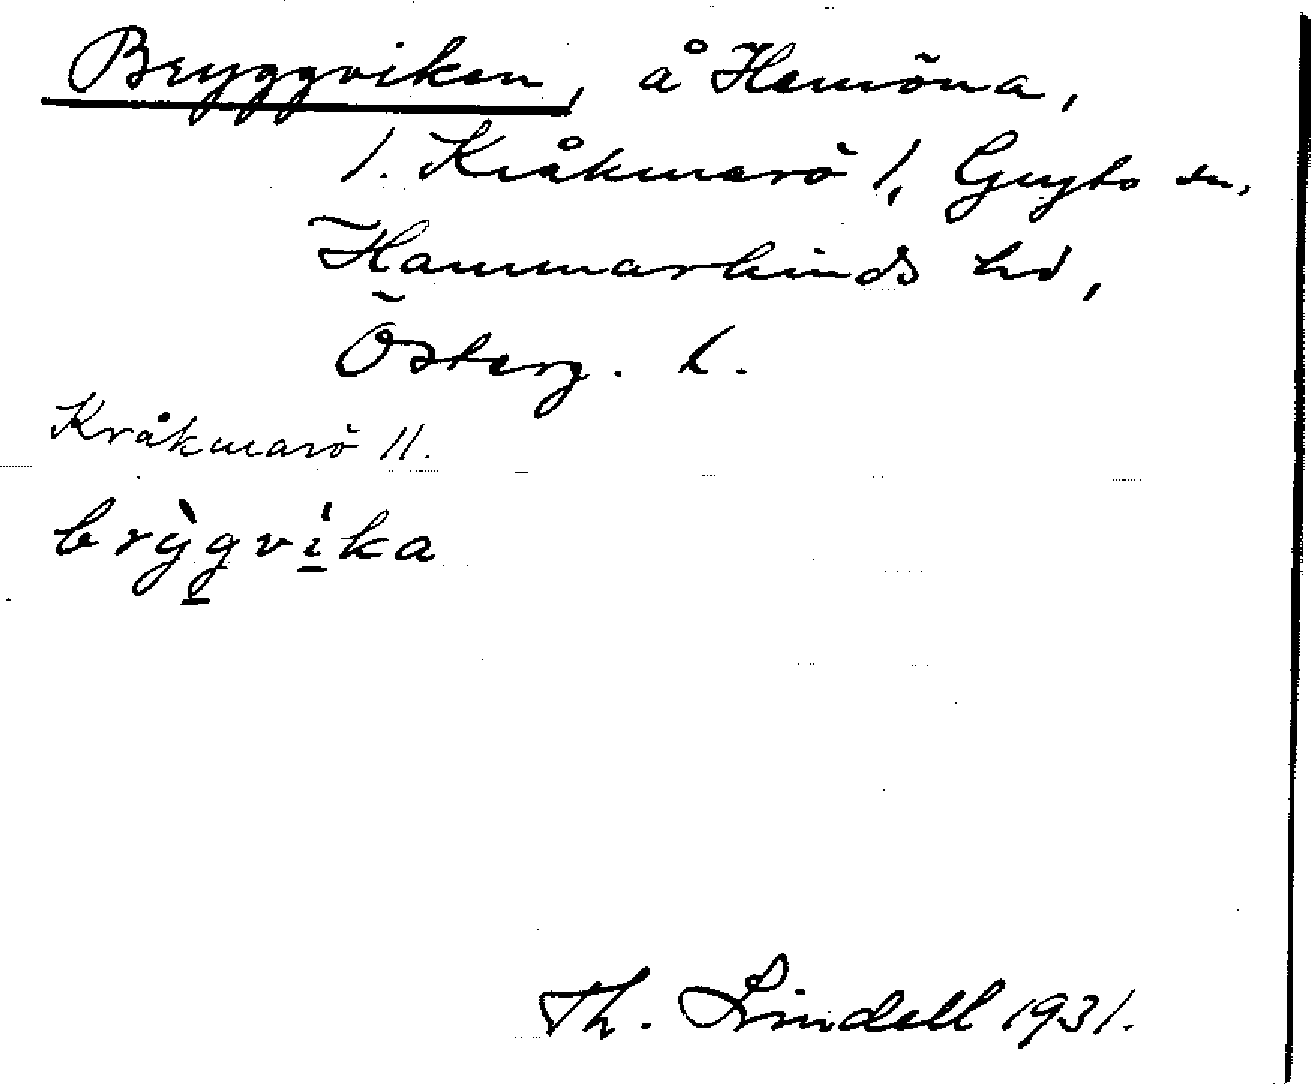 Bryggviken, å Hemöna,
1. Kråkmarö 1, Gryts sn,
Hammarkinds hd,
Österg. l.
Kråkmarö 11.
brỳgvìka
Th. Lindell 1931.